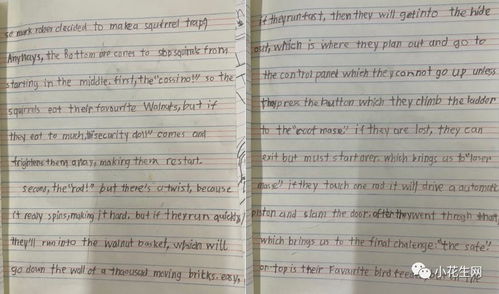 so mark rober decided to make a squirrel trap,
Anyhays, the Bottom are cones to stop squirels from
starting in the middle. first, the "cossino!" so the
squirels eat their favourite Walnuts, but if
they eat to much, "security doll" comes and
frightens them away, making them restart.
secons, the "rod!" but there's a twist, because
it realy spins, making it hard. but if they run quickly,
they'll run into the walnut basket, which will
go down the wall of a thousand moving briks. easy,
if they run fast, then they will get into the hide
out, which is where they plan out and go to
the control panel which they connot go up unless
they pres the button which they climb the ladder
to the mase" if they are lost, they can
exit but must start over. which brings us to "laser
mase" if they touch one rod it will drive a automatic
piston and slam the door. after they went throgh that,
which brings us to the final challenge: "the safe"
on top is their Favourite bird feeder the
小花生网